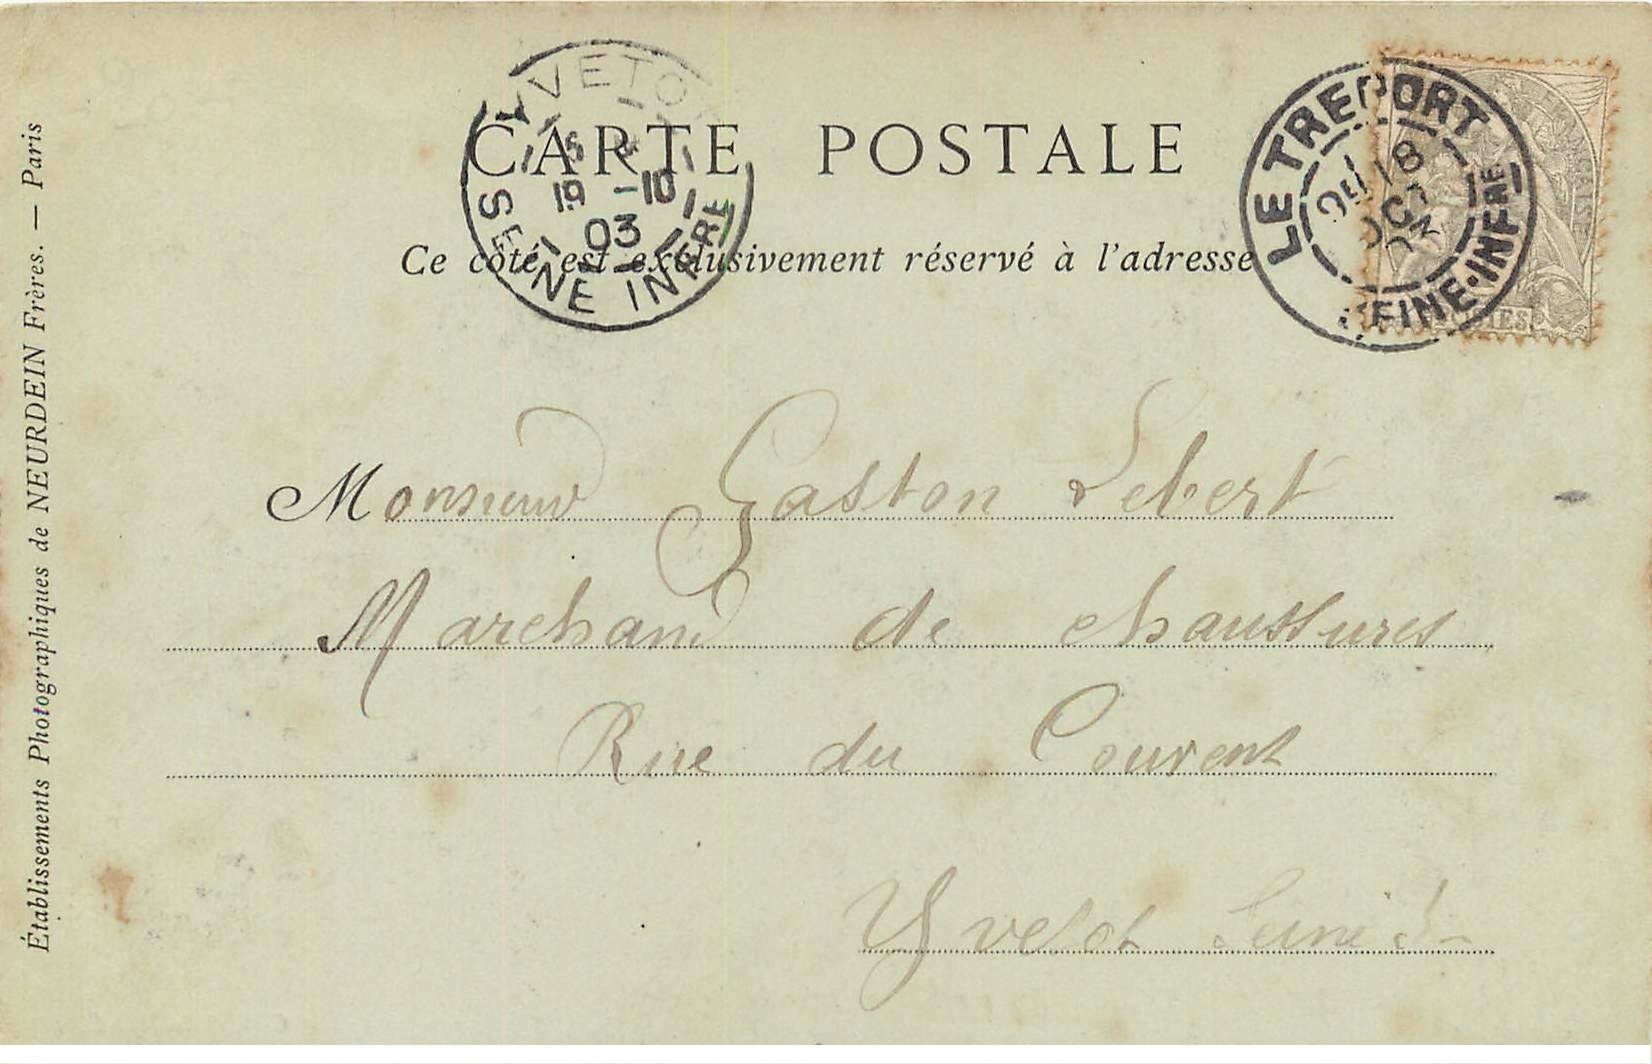 CARTE POSTALE
Ce côté est exclusivement réservé à l'adresse
YVETOT
19 -10
03
SEINE INFRE
LE TREPORT
18
OCT
03
SEINE-INFRE
Monsieur Gaston Lebert
Marchand de chaussures
Rue du Couvent
Yvetot Seine I-
Établissements Photographiques de NEURDEIN Frères. — Paris